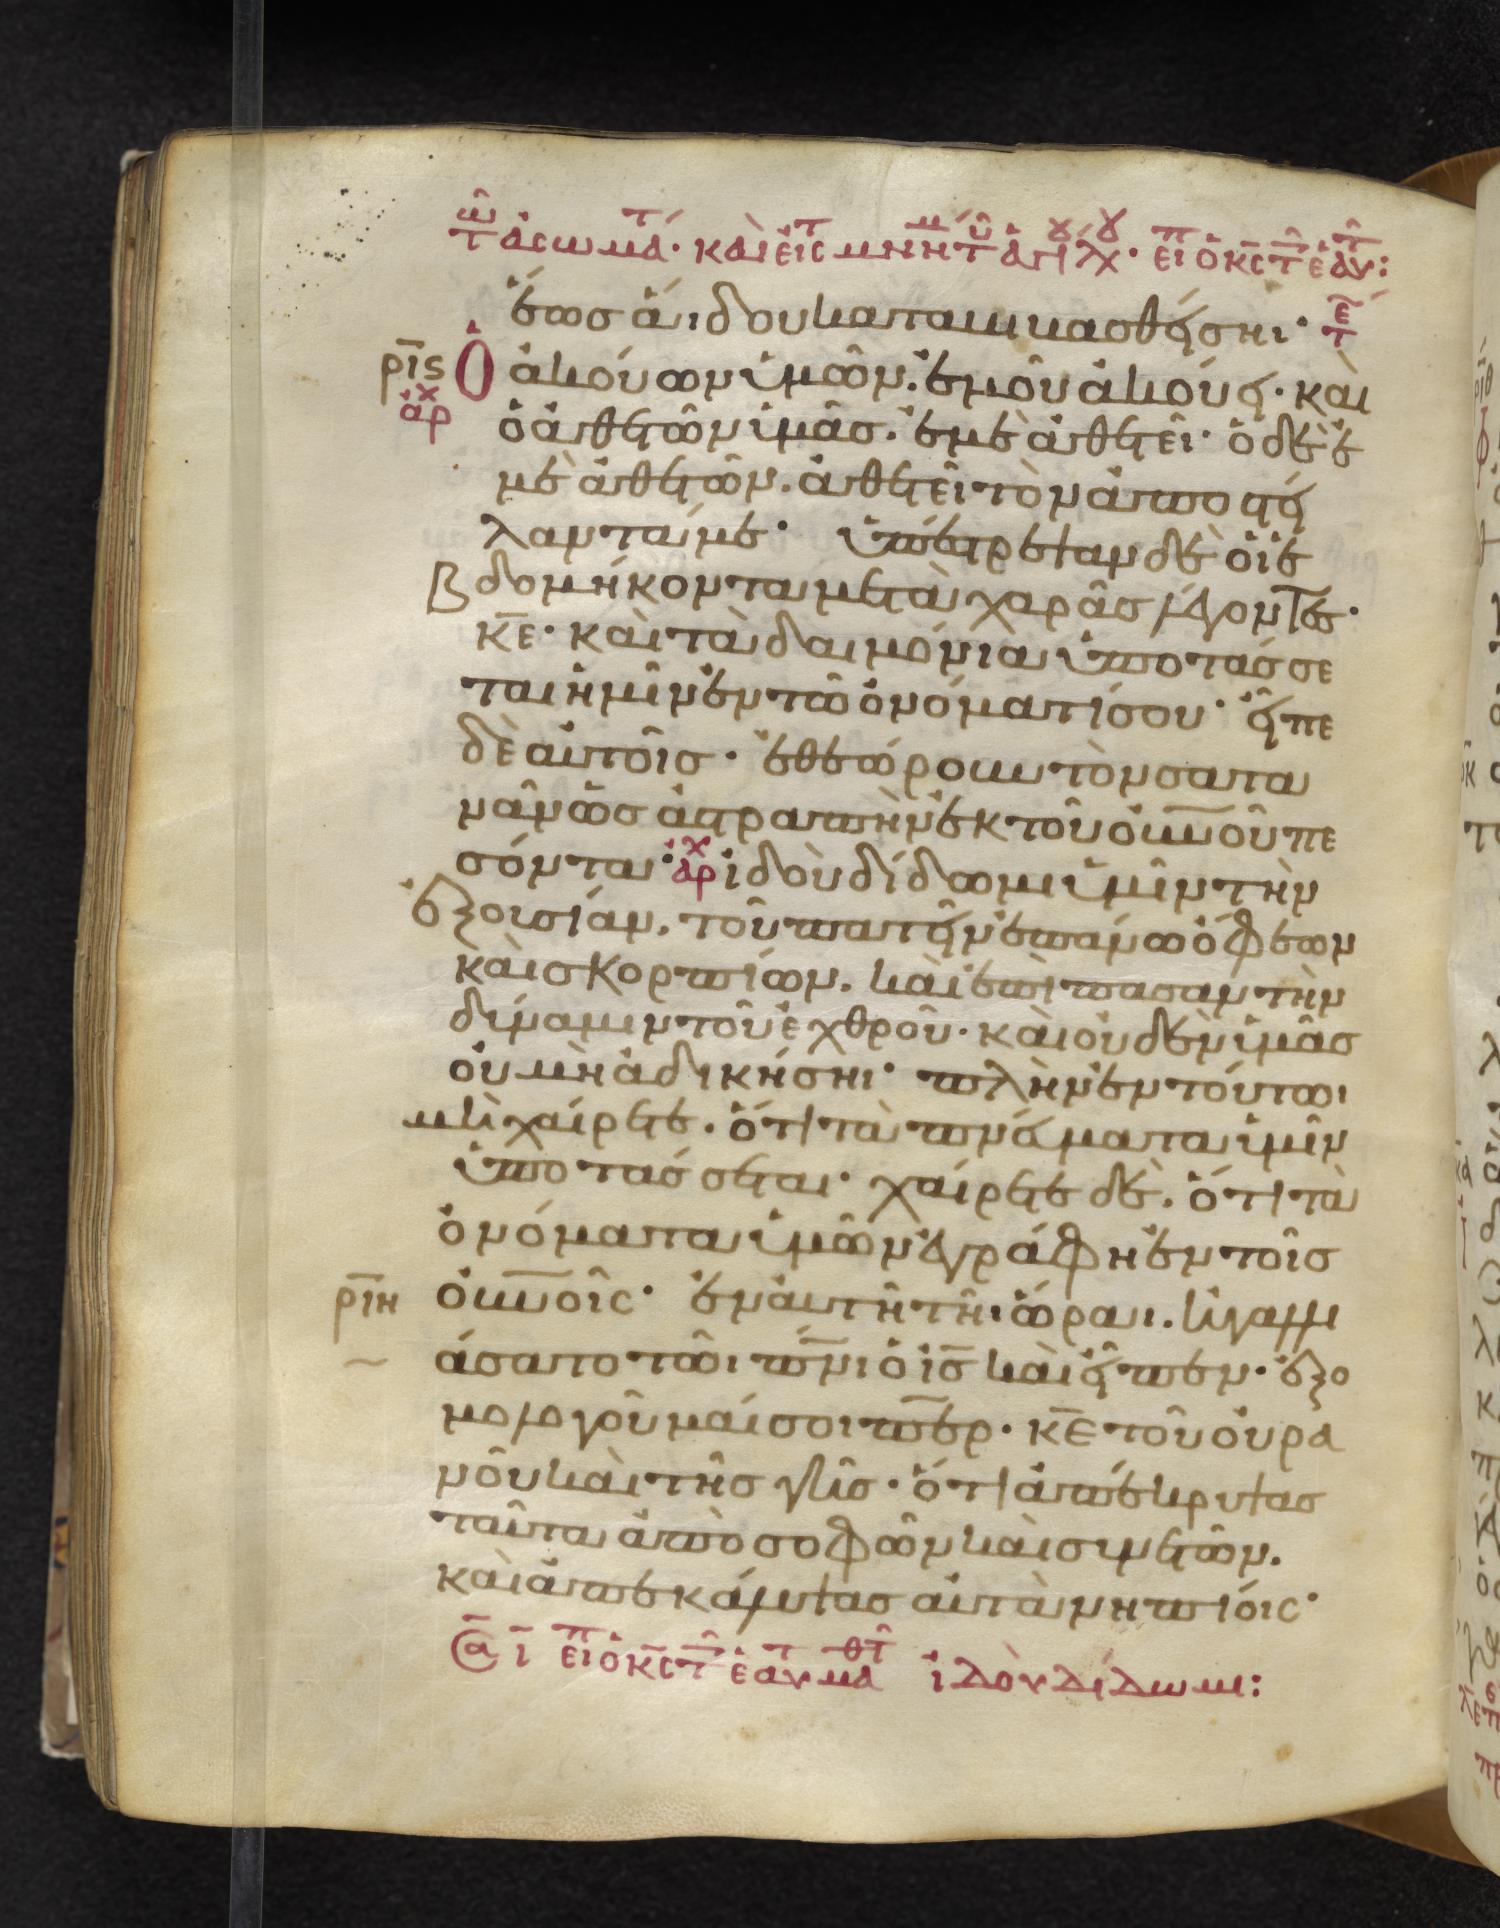 τ ασωμά· καὶ εἰς μνη τ ἁγί λχ· εἰ ὁ κς τ ἑ αυ:
ἕως ἅιδου καταβιβασθήσηι· τε
ρις Ὁ ἀκούων ὑμῶν. ἐμοῦ ἀκούει· καὶ
αρχ ὁ ἀθετῶν ὑμᾶς. ἐμὲ ἀθετεῖ· ὁ δὲ ἐ
μὲ ἀθετῶν. ἀθετεῖ τὸν ἀποστεί
λαντά με· ὑπέστρεψαν δὲ οἱ ἑ
βδομήκοντα μετὰ χαρᾶς λέγοντες·
κε· καὶ τὰ δαιμόνια ὑποτάσσε
ται ἡμῖν ἐν τῶ ὀνόματί σου· εἶπε
δὲ αὐτοῖς· ἐθεώρουν τὸν σατα
νᾶν ὡς ἀστραπὴν ἐκ τοῦ οὐνοῦ πε
σόντα· αρχ ἰδοὺ δίδωμι ὑμῖν τὴν
ἐξουσίαν. τοῦ πατεῖν ἐπάνω ὄφεων
καὶ σκορπίων. καὶ ἐπὶ πασαν τὴν
δύναμιν τοῦ ἐχθροῦ· καὶ οὐδὲν ὑμᾶς
οὐ μὴ ἀδικήσηι· πλὴν ἐν τούτωι
μὴ χαίρετε. ὅτι τὰ πνέματα ὑμῖν
ὑποτάσσεται· χαίρετε δὲ. ὅτι τὰ
ὀνόματα ὑμῶν ἐγράφη ἐν τοῖς
ριη οὐνοῖς· ἐν αὐτῆ τῆι ὥραι. ἠγαλλι
άσατο τῶι πνι ὁ ις καὶ εἶπεν· ἐξο
μολογοῦμαί σοι περ· κε τοῦ οὐρα
νοῦ καὶ τῆς γῆς· ὅτι ἀπέκρυψας
ταῦτα ἀπὸ σοφῶν καὶ συνετῶν.
καὶ ἀπεκάλυψας αὐτὰ νηπίοις·
α ι ειπ ὁ κς τ ἑαυτ μαθτ ἰδοὺ δίδωμι: